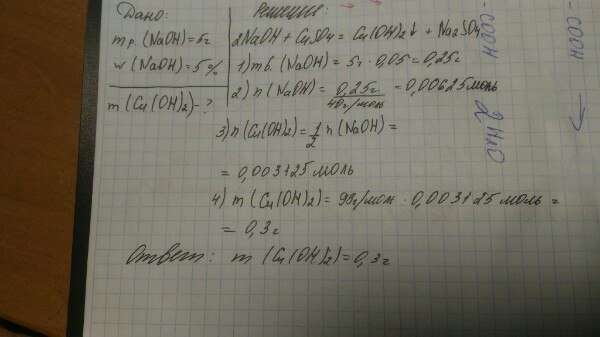 Дано:
mр. (NaOH) = 5г
w (NaOH) = 5%
m (Cu(OH)2) - ?
Решение:
2NaOH + CuSO4 = Cu(OH)2↓ + Na2SO4
1) mв. (NaOH) = 5г · 0,05 = 0,25г
2) n (NaOH) = 0,25г / 40г/моль = 0,00625 моль
3) n (Cu(OH)2) = 1/2 n (NaOH) =
= 0,003125 моль
4) m (Cu(OH)2) = 98г/моль · 0,003125 моль =
= 0,3г
Ответ: m (Cu(OH)2) = 0,3г
-COOH
2H2O
-COOH
→